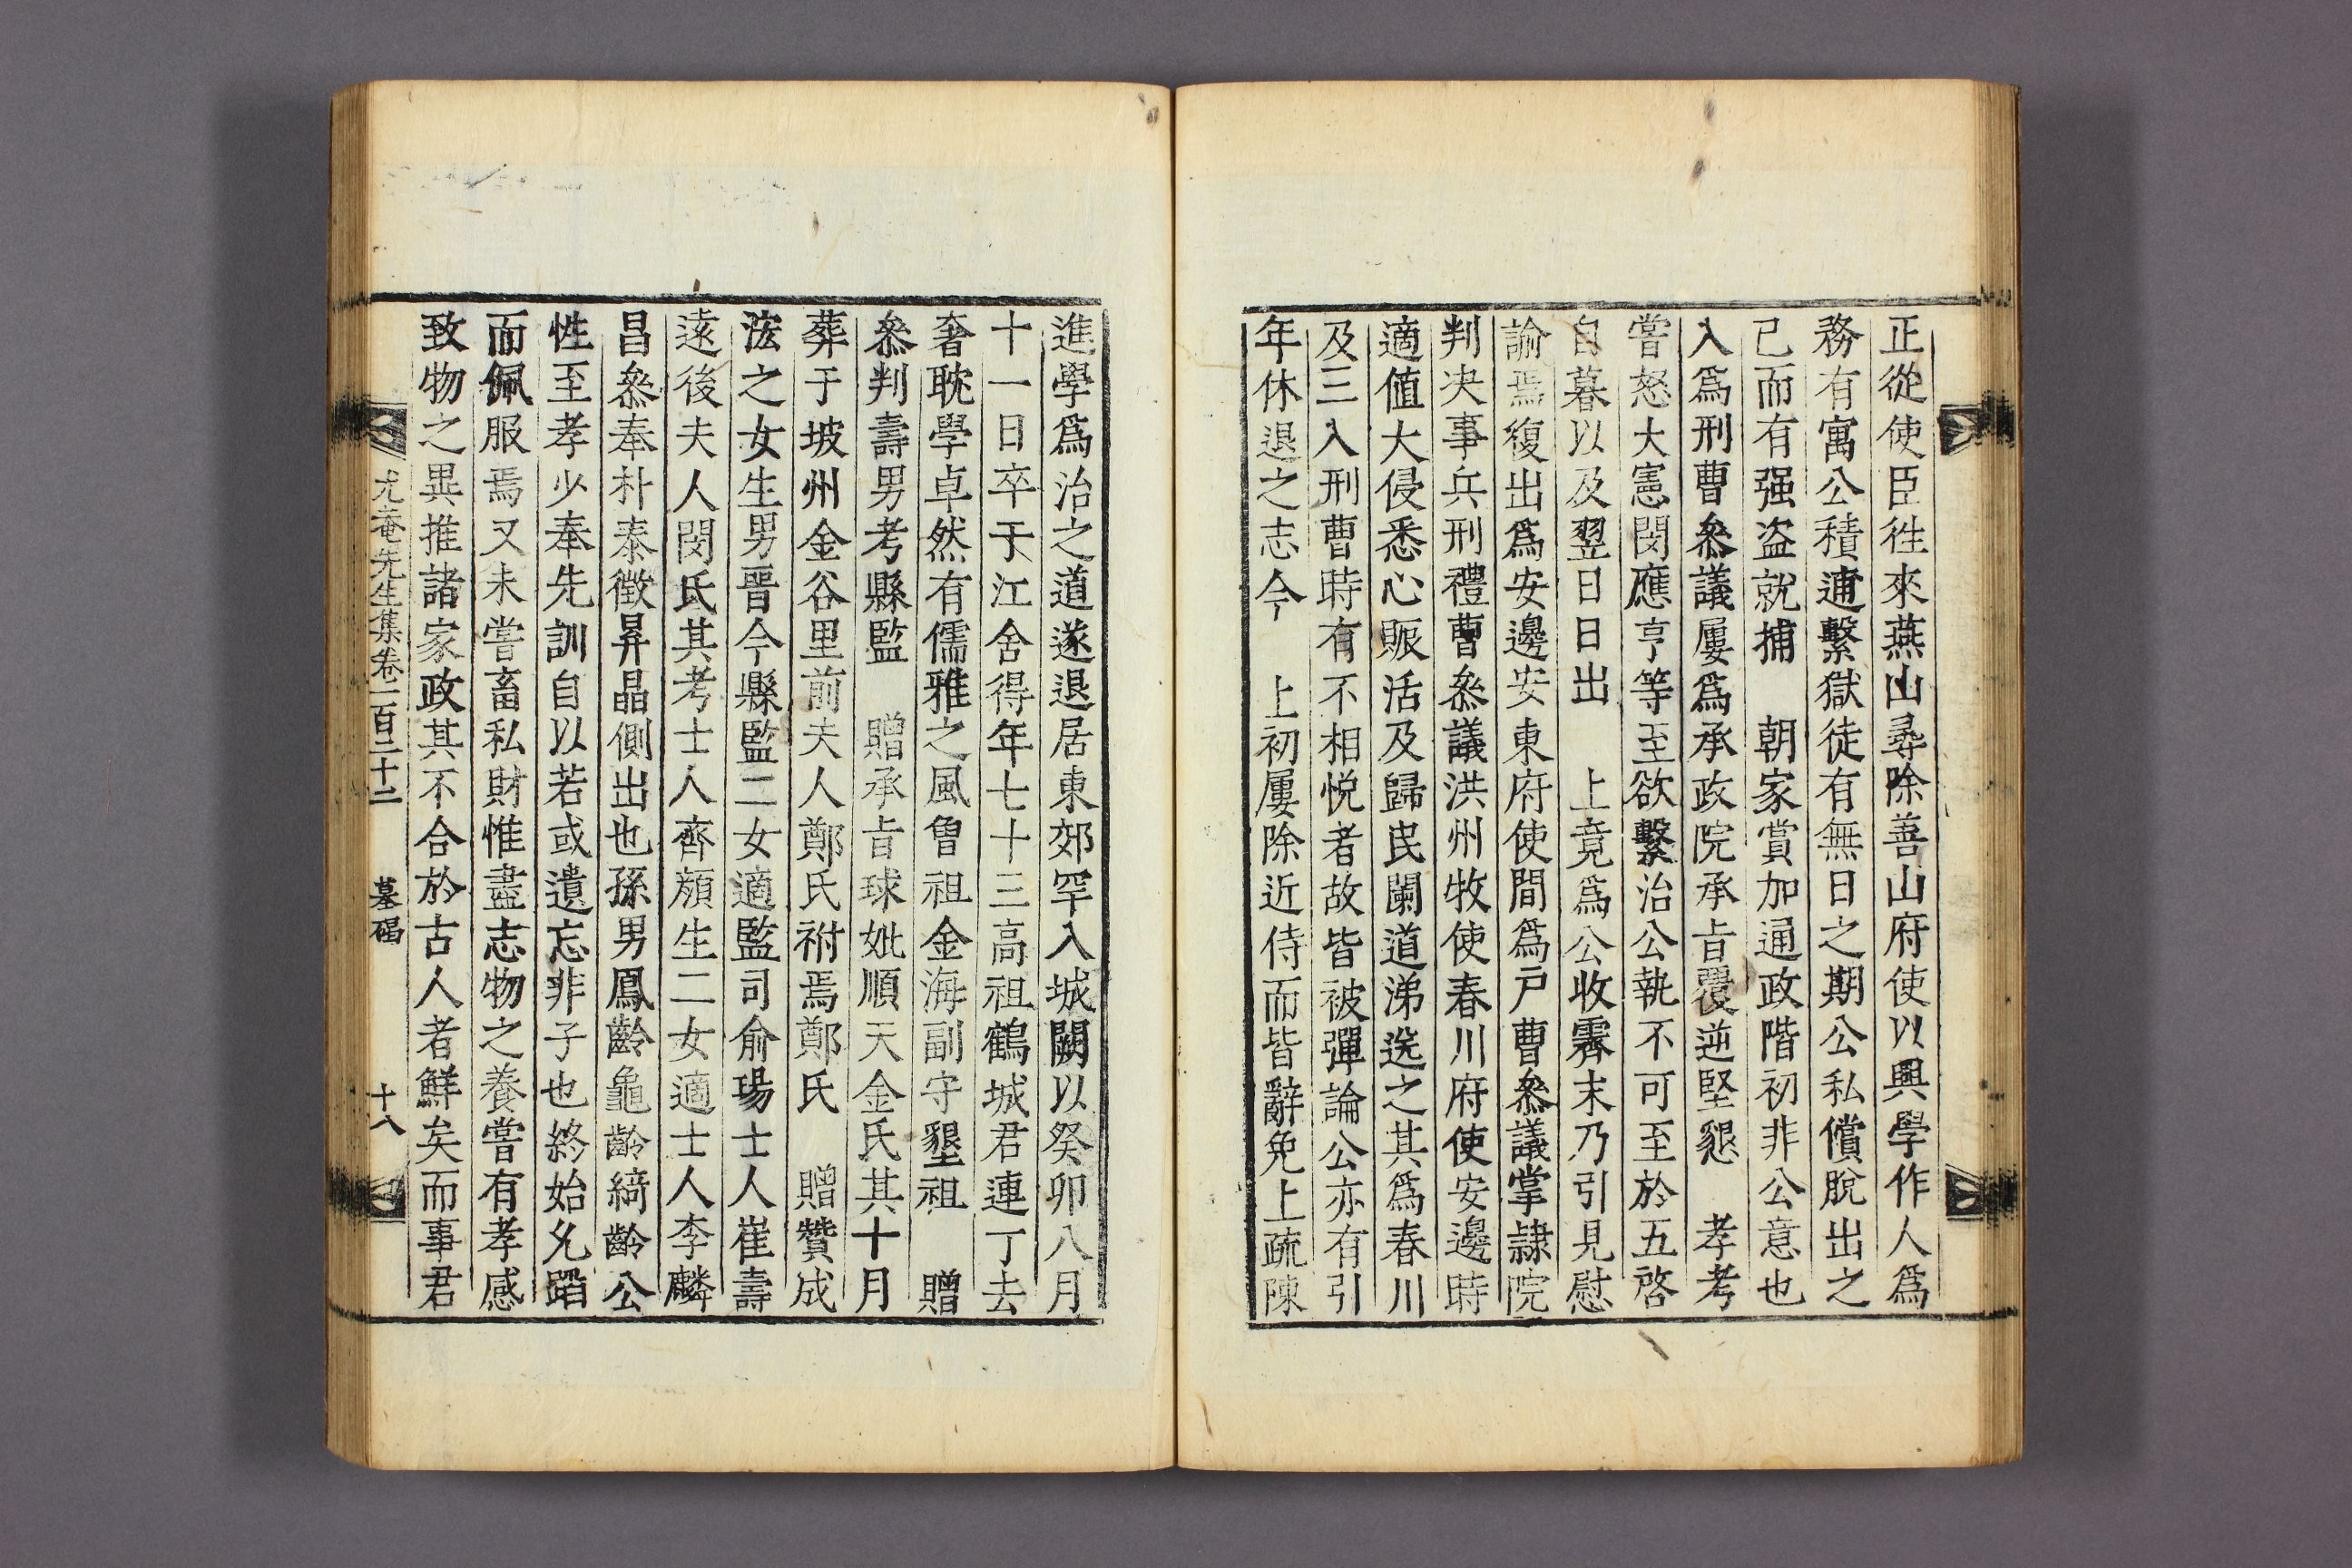 正從使臣徃來燕山尋除善山府使以興學作人爲
務有寓公積逋繫獄徒有無日之期公私償脫出之
已而有强盗就捕 朝家賞加通政階初非公意也
入爲刑曹叅議屢爲承政院承旨覆逆堅懇 孝考
嘗怒大憲閔應亨等至欲繫治公執不可至於五啓
自暮以及翌日日出 上竟爲公收霽末乃引見慰
諭焉復出爲安邊安東府使間爲戶曹叅議掌隷院
判决事兵刑禮曹叅議洪州牧使春川府使安邊時
適値大侵悉心賑活及歸民闌道涕送之其爲春川
及三入刑曹時有不相悅者故皆被彈論公亦有引
年休退之志今 上初屢除近侍而皆辭免上疏陳
進學爲治之道遂退居東郊罕入城闕以癸卯八月
十一日卒于江舍得年七十三高祖鶴城君連丁去
奢耽學卓然有儒雅之風曾祖金海副守墾祖 贈
叅判壽男考縣監 贈承旨球妣順天金氏其十月
葬于坡州金谷里前夫人鄭氏祔焉鄭氏 贈贊成
浤之女生男晋今縣監二女適監司俞瑒士人崔壽
遠後夫人閔氏其考士人齊顔生二女適士人李麟
昌叅奉朴泰徵昇晶側出也孫男鳳齡龜齡綺齡公
性至孝少奉先訓自以若或遺忘非子也終始允蹈
而佩服焉又未嘗畜私財惟盡志物之養嘗有孝感
致物之異推諸家政其不合於古人者鮮矣而事君
尤菴先生集卷一百二十二 墓碣 十八